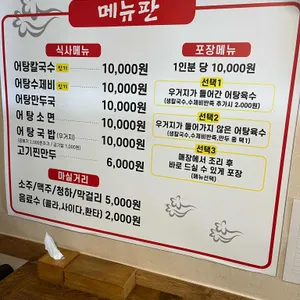 메뉴판
식사메뉴
어탕칼국수 인기 10,000원
어탕수제비 인기 10,000원
어탕만두국 10,000원
어 탕 소 면 10,000원
어 탕 국 밥 (우거지) 10,000원
고기찐만두 6,000원
마실거리
소주/맥주/청하/막걸리 5,000원
음료수 (콜라,사이다,환타) 2,000원
포장메뉴
1인분 당 10,000원
선택1
우거지가 들어간 어탕육수
(생칼국수,수제비반죽 추가시 2,000원)
선택2
우거지가 들어가지 않은 어탕육수
(생칼국수,수제비반죽,만두 중 택1)
선택3
매장에서 조리 후
바로 드실 수 있게 포장
(메뉴선택)